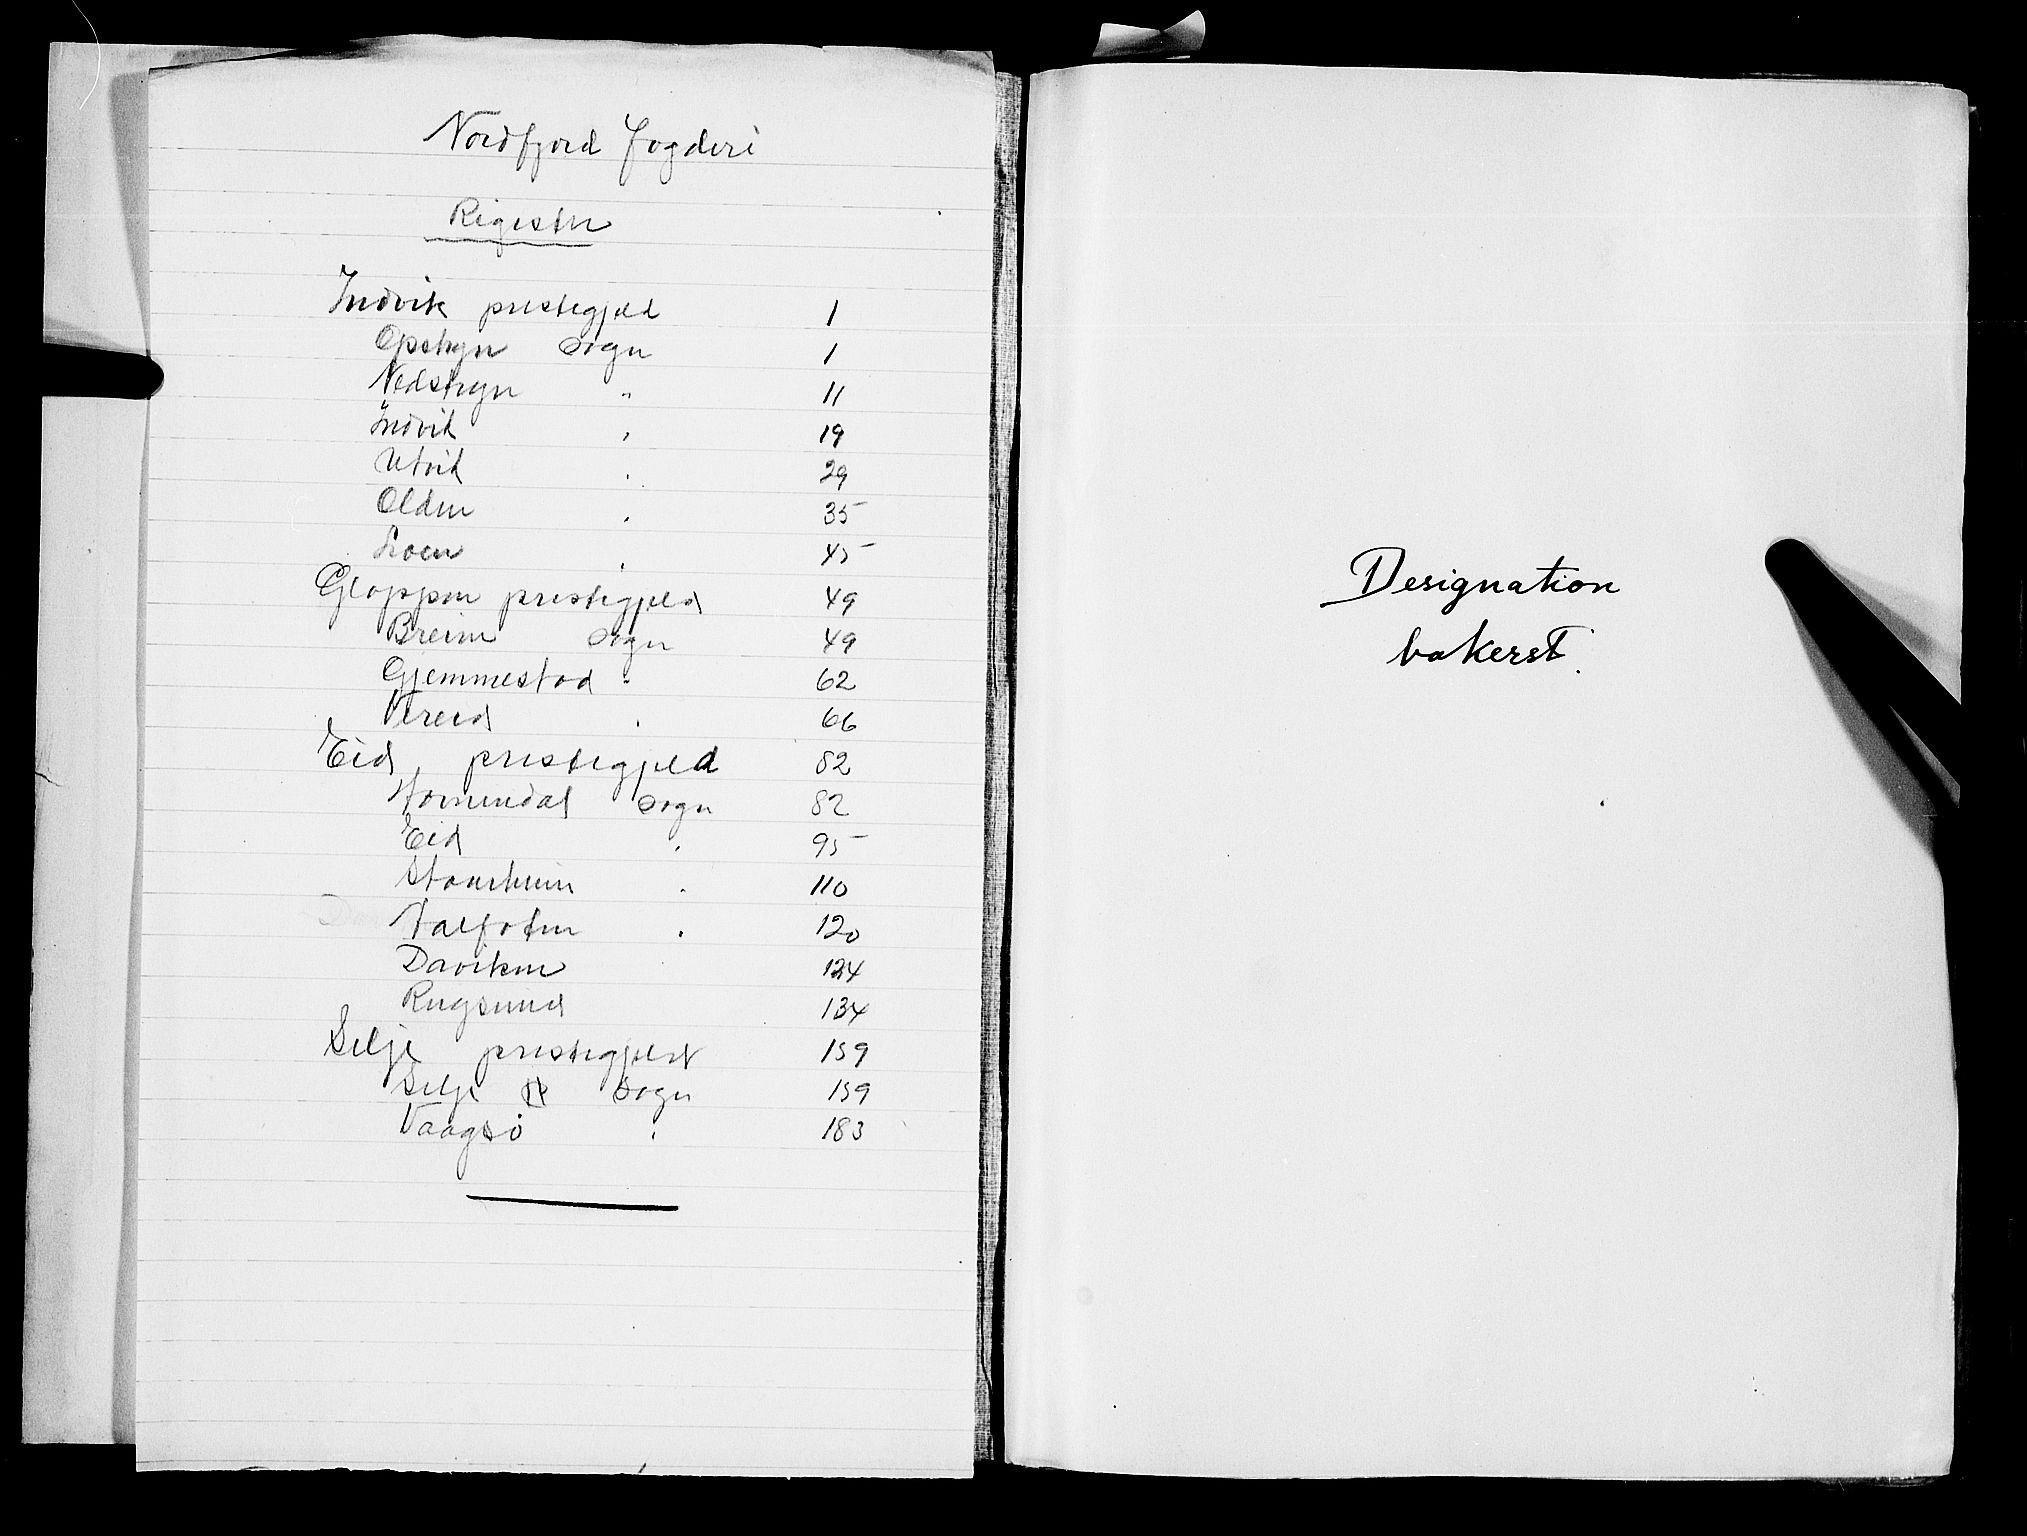 Nordfjord fogderi
Register
Indvik prestegjeld 1
Opstryn sogn 1
Nedstryn " 11
Indvik " 19
Utvik " 29
Olden " 35
Loen " 45
Gloppen prestegjeld 49
Breim sogn 49
Gjemmestad " 62
Vereid " 66
Eid prestegjeld 82
Hornindal sogn 82
Eid " 95
Staarheim " 110
Aalfoten " 120
Daviken " 124
Rugsund 134
Selje prestegjeld 159
Selje sogn 159
Vaagsö " 183
Designation
bakerst.